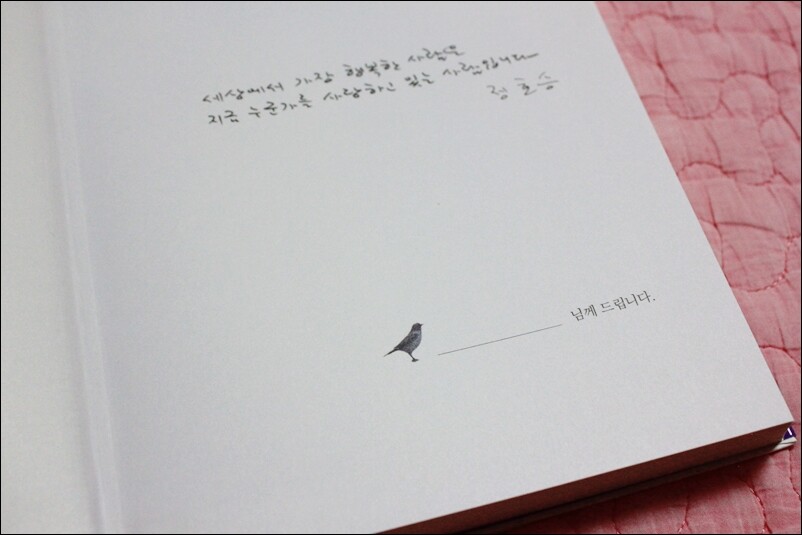 세상에서 가장 행복한 사람은
지금 누군가를 사랑하고 있는 사람입니다
정호승
님께 드립니다.